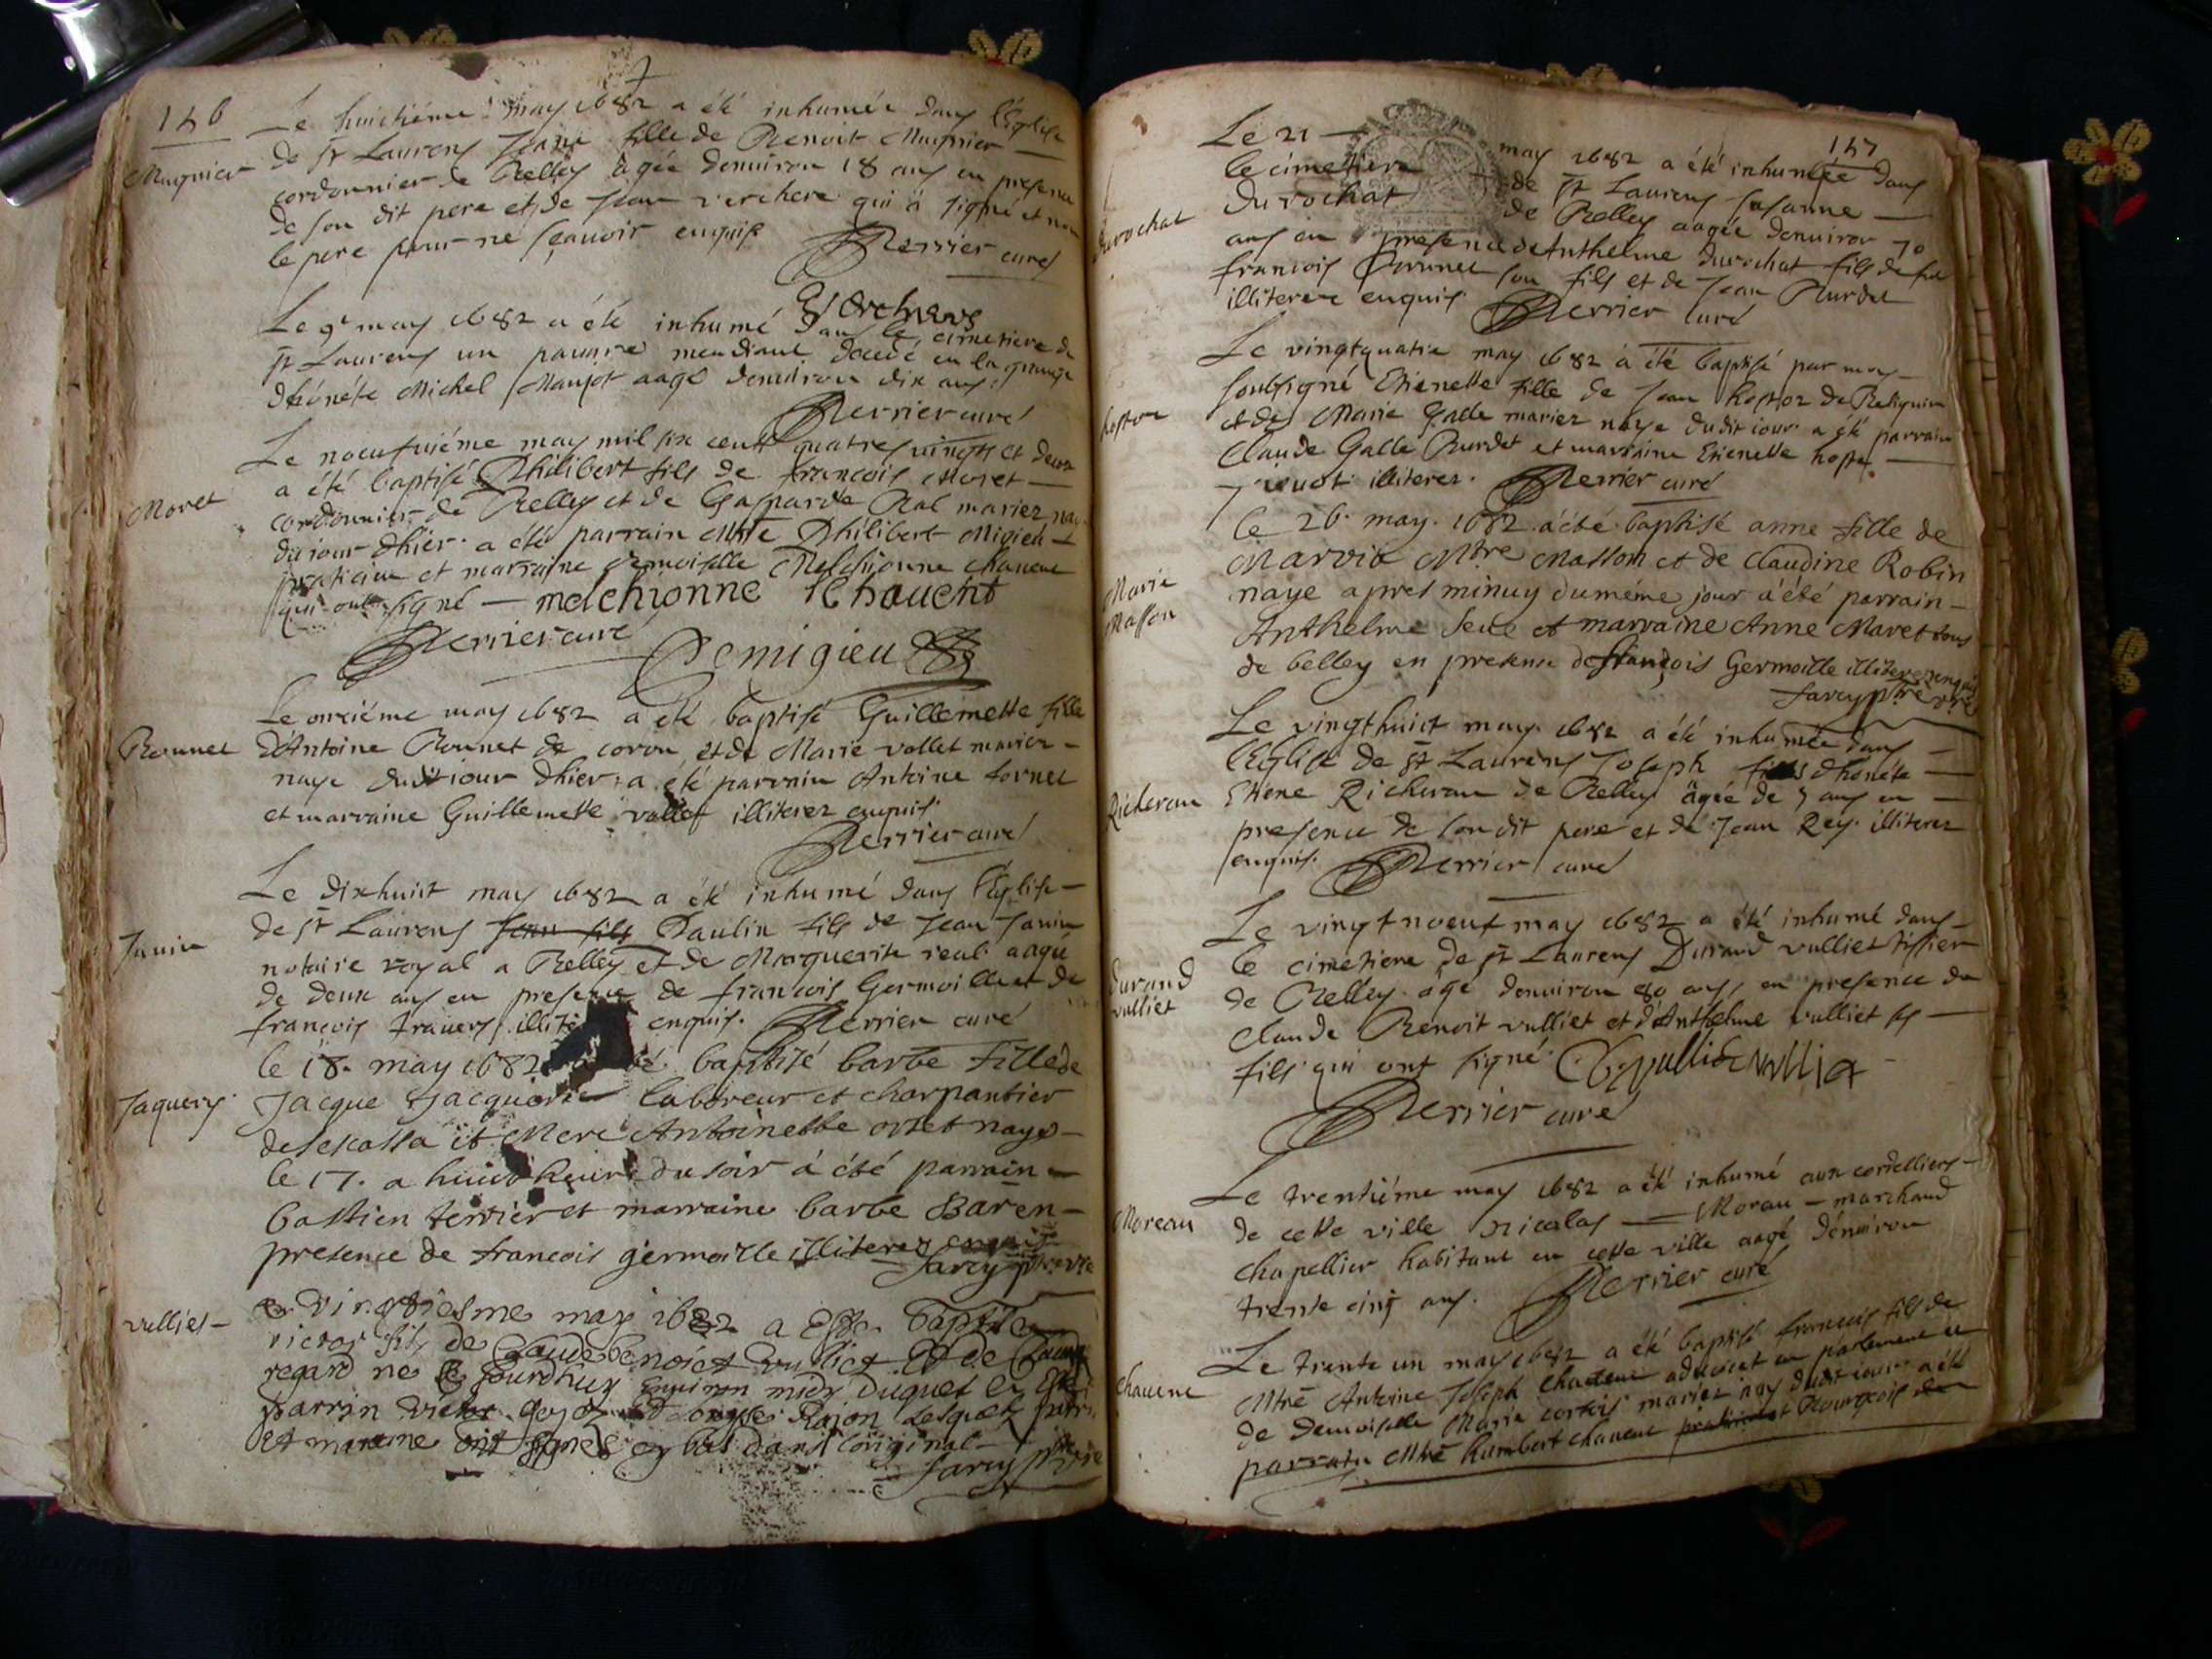 146
Le huictiéme may 1682 a été inhumée dans l'Eglise
Mugnier
de st Laurens Jeane fille de Benoit Mugnier
cordonnier de Belley âgée denuiron 18 ans en presence
de son dit pere et de Jean verchere qui a signé et non
le pere pour ne sçauoir enquis Perrier curé
Le 9e may 1682 a été inhumé dans le cimetiere de
st Laurens un pauure mendiant decedé en la grange
dhonéte Michel Maujot aagé denuiron dix ans.
Perrier curé
Le noeufuiéme may mil six cents quatres vingts et deux
Moret
a été baptisé Philibert fils de francois Moret
cordonnier de Belley et de Gasparde Ral mariez nay
du iour dhier. a été parrain Mtre Philibert Migieu
praticien et marraine demoiselle Melchionne chauene
qui ont signé — melchionne
Perrier curé Demigieu
Le onziéme may 1682 a été baptisé Guillemette fille
Bonnet
d'Antoine Bonnet de coron et de Marie vollet mariez
naye dudit iour dhier. a été parrain Antoine fornet
et marraine Guillemette vollet illiterez enquis
Perrier curé
Le dixhuict may 1682 a été inhumé dans l'Eglise
Janin
de st Laurens Jean fils Paulin fils de Jean Janin
notaire royal a Belley et de Marguerite real aagé
de deux ans en presence de francois Germoille et de
francois trauers enquis. Perrier curé
le 18. may 1682 baptisé barbe fille de
Jaquery
Jacque laboreur et charpantier
et Mere Antoinette ortet naye
le 17. a huict heure du soir a été parrain
bastien terrier et marraine barbe Baren
presence de francois germoille illiterez enquis
farcy ptre vre
vulliet
vingtiesme may 1682 a este baptise
victor fils de Claude benoict vulliet et de Claude
regard ne enuiron midy duquel en este
parrin
et mareine ont signes cy bas dans l'original
farcy ptre vre
147
Le 21 may 1682 a été inhumée dans
le cimetiere de st Laurens susanne
durochat
Durochat de Belley aagée denuiron 70
ans en presence de Anthelme durochat fils de feu
francois Brunet son fils et de Jean Burdet
illiterez enquis Perrier curé
Le vingtquatre may 1682 a été baptisé par moy
hoste
soubsigné Etienette fille de Jean hoste de
et de Marie Galle mariez naye dudit iour a été parrain
Claude Galle Burdet et marraine Etienette hoste
illiterez. Perrier curé
le 26. may. 1682 a été baptisé anne fille de
Marvie Mtre Masson et de Claudine Robin
Marie
Masson
naye apres minuy du méme jour a été parrain
Anthelme seue et marraine Anne Maret tous
de belley en presence de françois Germoille illiterez enquis
farcy ptre vre
Le vingthuict may 1682 a été inhumée dans
l'Eglise de st Laurens Joseph fils dhonéte
Richeran
Etiene Richeran de Belley âgée de 5 ans en
presence de son dit pere et de Jean Rey. illiterez
enquis. Perrier curé
Le vingtnoeuf may 1682 a été inhumé dans
durand
vulliet
le cimetiere de st Laurens Durand vulliet tissier
de Belley âgé denuiron 80 ans, en presence de
claude Benoit vulliet et d'Anthelme vulliet ses
fils qui ont signé. C b vulliet vulliet
Perrier curé
Le trentiéme may 1682 a été inhumé aux cordelliers
Moreau
de cette ville Nicolas — Morau — marchand
chapellier habitant en cette ville aagé dénuiron
trente cinq ans. Perrier curé
Le trente un may 1682 a été baptisé francois fils de
chauene
Mtre Antoine Joseph chauene aduocat en parlement et
de demoiselle Marie cortois mariez nay dudit iour a été
parrain Mtre humbert chauene praticien et Bourgeois de